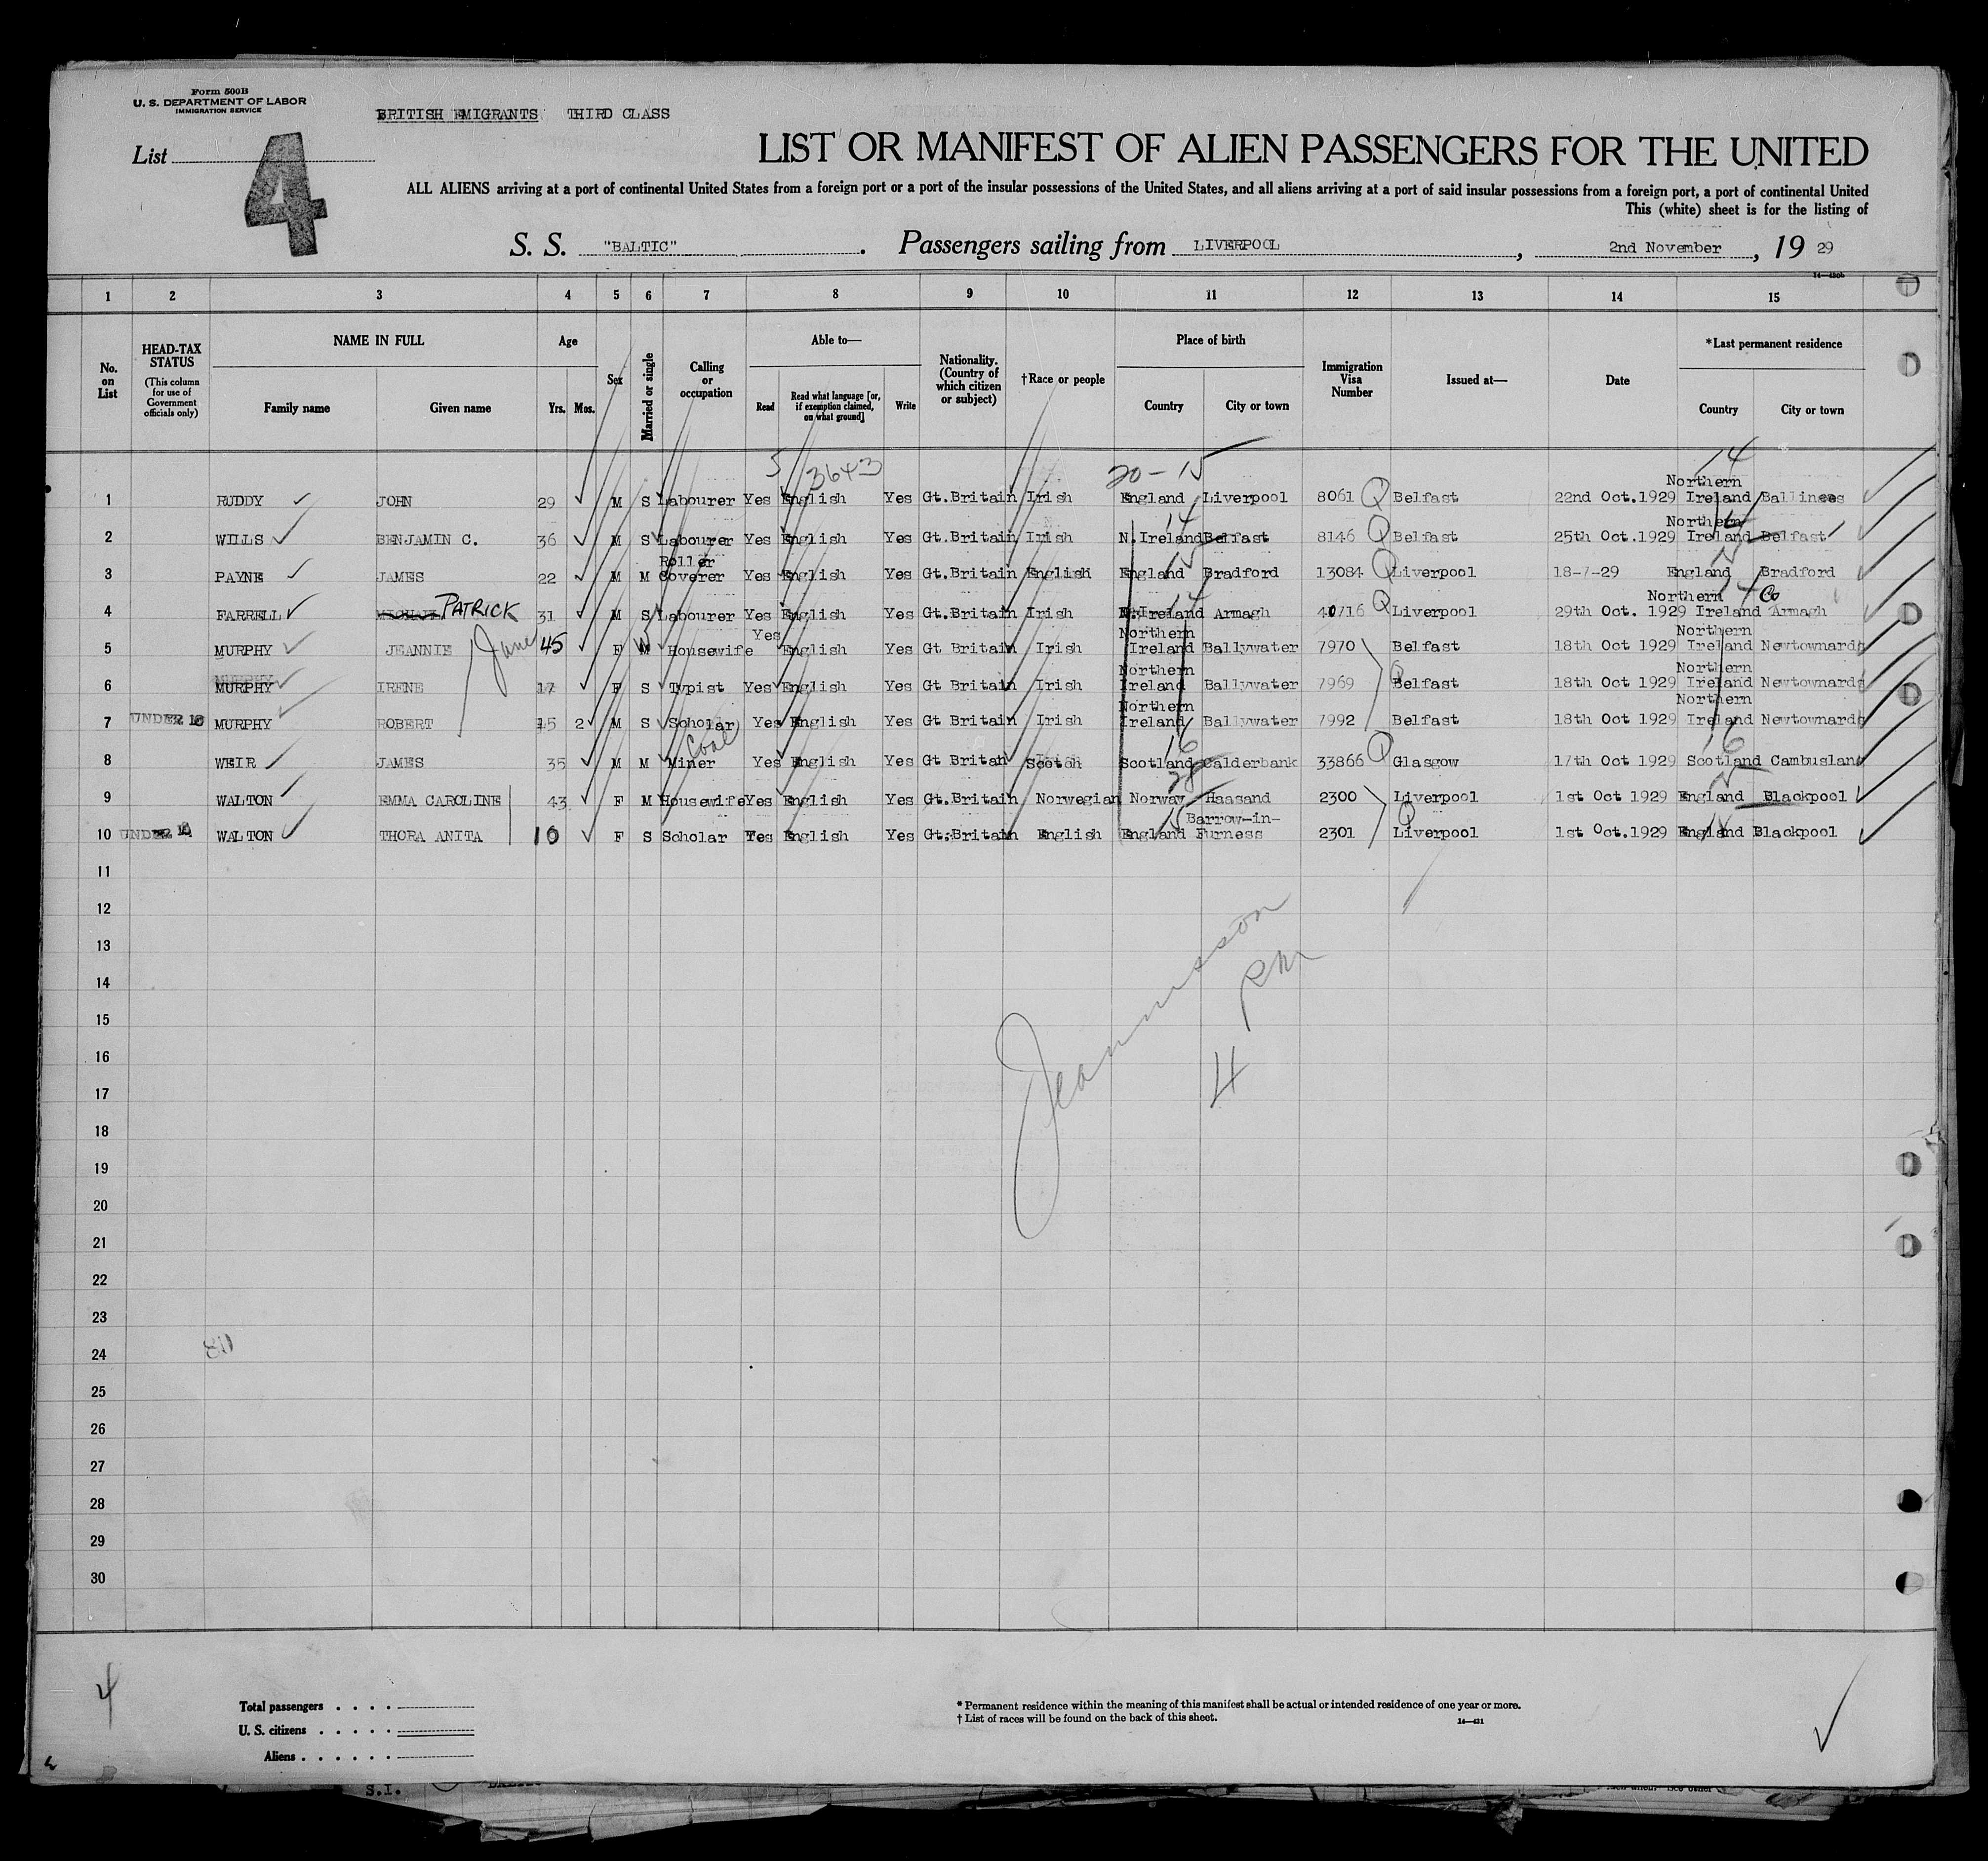 Form 500B
U. S. DEPARTMENT OF LABOR
IMMIGRATION SERVICE
BRITISH EMIGRANTS THIRD CLASS
List 4
LIST OR MANIFEST OF ALIEN PASSENGERS FOR THE UNITED
ALL ALIENS arriving at a port of continental United States from a foreign port or a port of the insular possessions of the United States, and all aliens arriving at a port of said insular possessions from a foreign port, a port of continental United
This (white) sheet is for the listing of
S. S. "BALTIC" . Passengers sailing from LIVERPOOL , 2nd November , 19 29
1 2 3 4 5 6 7 8 9 10 11 12 13 14 15
No. on List
HEAD-TAX STATUS (This column for use of Government officials only)
NAME IN FULL
Family name Given name
Age
Yrs. Mos.
Sex
Married or single
Calling or occupation
Able to—
Read Read what language [or, if exemption claimed, on what ground] Write
Nationality. (Country of which citizen or subject)
†Race or people
Place of birth
Country City or town
Immigration Visa Number
Issued at—
Date
*Last permanent residence
Country City or town
5 3643 20-15 14
1 RUDDY JOHN 29 M S Labourer Yes English Yes Gt.Britain Irish England Liverpool 8061 Q Belfast 22nd Oct.1929 Northern Ireland
2 WILLS BENJAMIN C. 36 M S Labourer Yes English Yes Gt.Britain Irish N.Ireland Belfast 8146 Q Belfast 25th Oct.1929 Northern Ireland Belfast
3 PAYNE JAMES 22 M M Roller Coverer Yes English Yes Gt.Britain English England Bradford 13084 Q Liverpool 18-7-29 England Bradford
4 FARRELL PATRICK 31 M S Labourer Yes English Yes Gt.Britain Irish N.Ireland Armagh 40716 Q Liverpool 29th Oct. 1929 Northern Ireland Co Armagh
5 MURPHY JEANNIE Jane 45 F W Housewife Yes English Yes Gt Britain Irish Northern Ireland Ballywater 7970 Belfast 18th Oct 1929 Northern Ireland Newtownards
6 MURPHY IRENE 17 F S Typist Yes English Yes Gt Britain Irish Northern Ireland Ballywater 7969 Q Belfast 18th Oct 1929 Northern Ireland Newtownards
7 UNDER 16 MURPHY ROBERT 15 2 M S Scholar Yes English Yes Gt Britain Irish Northern Ireland Ballywater 7992 Belfast 18th Oct 1929 Northern Ireland Newtownards
8 WEIR JAMES 35 M M Coal Miner Yes English Yes Gt Britan Scotch Scotland Calderbank 33866 Q Glasgow 17th Oct 1929 Scotland Cambuslang
9 WALTON EMMA CAROLINE 43 F M Housewife Yes English Yes Gt.Britain Norwegian Norway Haasand 2300 Liverpool 1st Oct 1929 England Blackpool
10 UNDER 16 WALTON THORA ANITA 10 F S Scholar Yes English Yes Gt.Britain English England Barrow-in-Furness 2301 Q Liverpool 1st Oct.1929 England Blackpool
11
12
13
14
15
16
17
18
19
20
21
22
23
24
25
26
27
28
29
30
4 PM
4
Total passengers . . . .
U. S. citizens . . . . .
Aliens . . . . . .
* Permanent residence within the meaning of this manifest shall be actual or intended residence of one year or more.
† List of races will be found on the back of this sheet.
14—431
S.I.